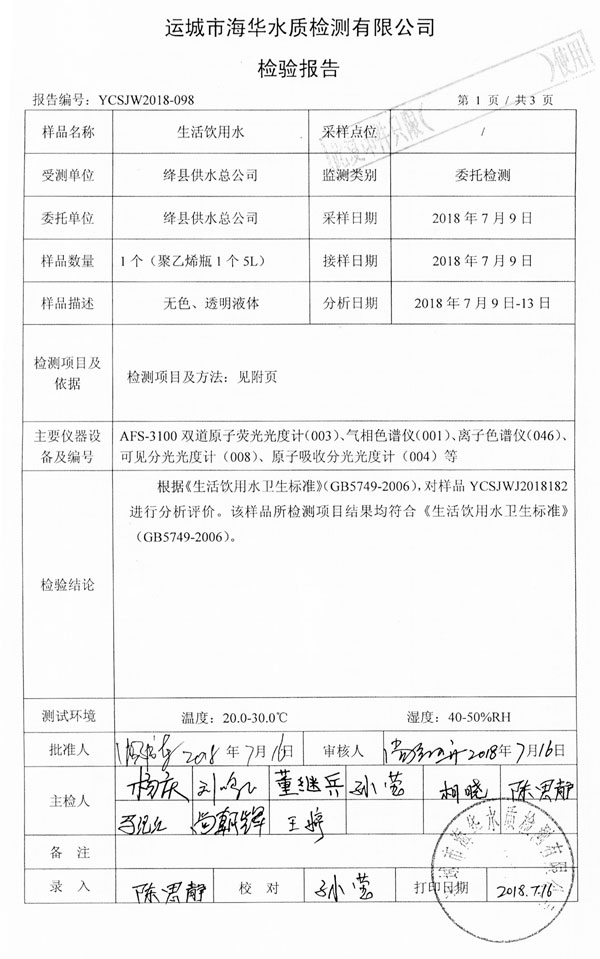 运城市海华水质检测有限公司
检验报告
此复印件只限( )使用
报告编号：YCSJW2018-098 第 1 页 / 共 3 页
样品名称 生活饮用水 采样点位 /
受测单位 绛县供水总公司 监测类别 委托检测
委托单位 绛县供水总公司 采样日期 2018 年 7 月 9 日
样品数量 1 个（聚乙烯瓶 1 个 5L） 接样日期 2018 年 7 月 9 日
样品描述 无色、透明液体 分析日期 2018 年 7 月 9 日-13 日
检测项目及
依据
检测项目及方法：见附页
主要仪器设
备及编号
AFS-3100 双道原子荧光光度计（003）、气相色谱仪（001）、离子色谱仪（046）、
可见分光光度计（008）、原子吸收分光光度计（004）等
检验结论
根据《生活饮用水卫生标准》（GB5749-2006），对样品 YCSJWJ2018182
进行分析评价。该样品所检测项目结果均符合《生活饮用水卫生标准》
（GB5749-2006）。
测试环境 温度：20.0-30.0℃ 湿度：40-50%RH
批准人 2018 年 7 月 16 日 审核人 2018 年 7 月 16 日
主检人 杨庆 董继兵 孙莹 柯晓 陈思静
尚朝辉 王婷
备 注
录 入 陈思静 校 对 孙莹 打印日期 2018.7.16
运城市海华水质检测有限公司